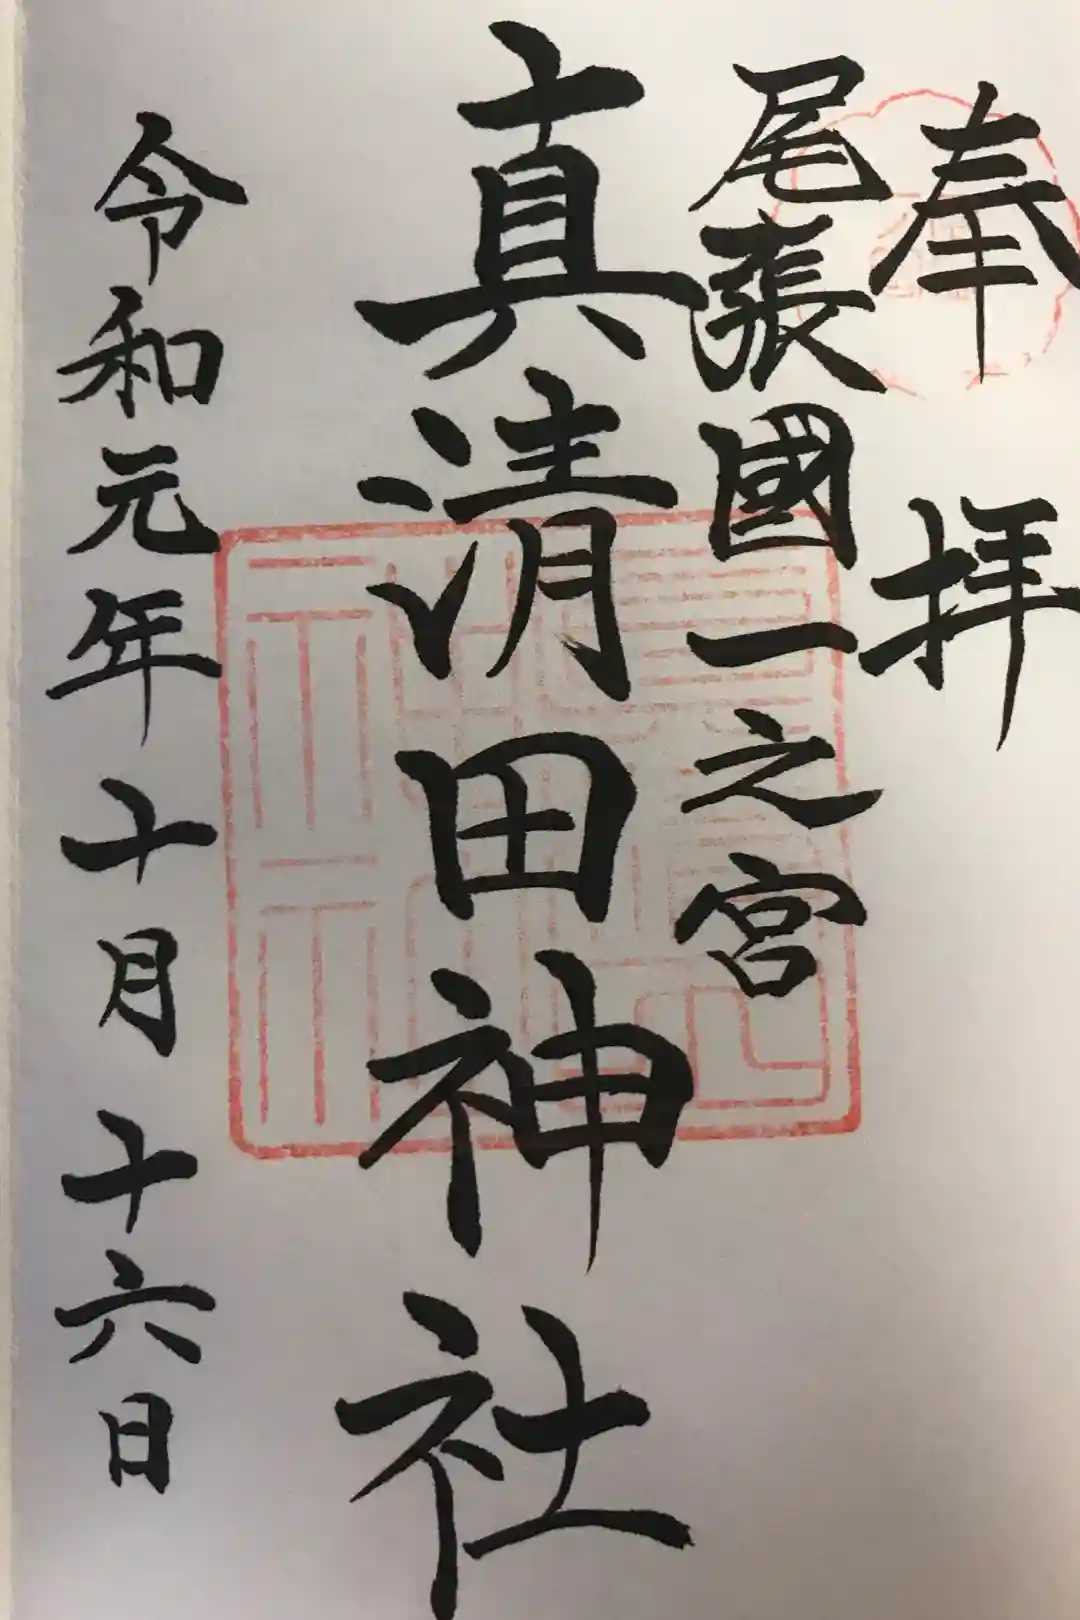 奉拝
尾張國一之宮
真清田神社
令和元年十月十六日